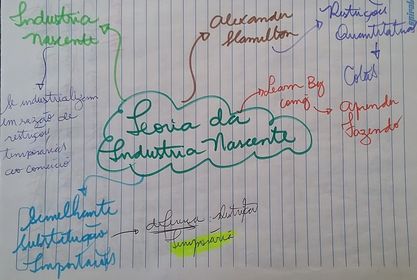 Industria
Nascente
Alexander
Hamilton
Restrições
Quantitativas
Cotas
Se industrializem
em razão de
restrições
temporárias
ao comércio
Learn By
Aprender
Fazendo
Teoria da
Industria Nascente
Semelhante
Substituição
Importações
temporária